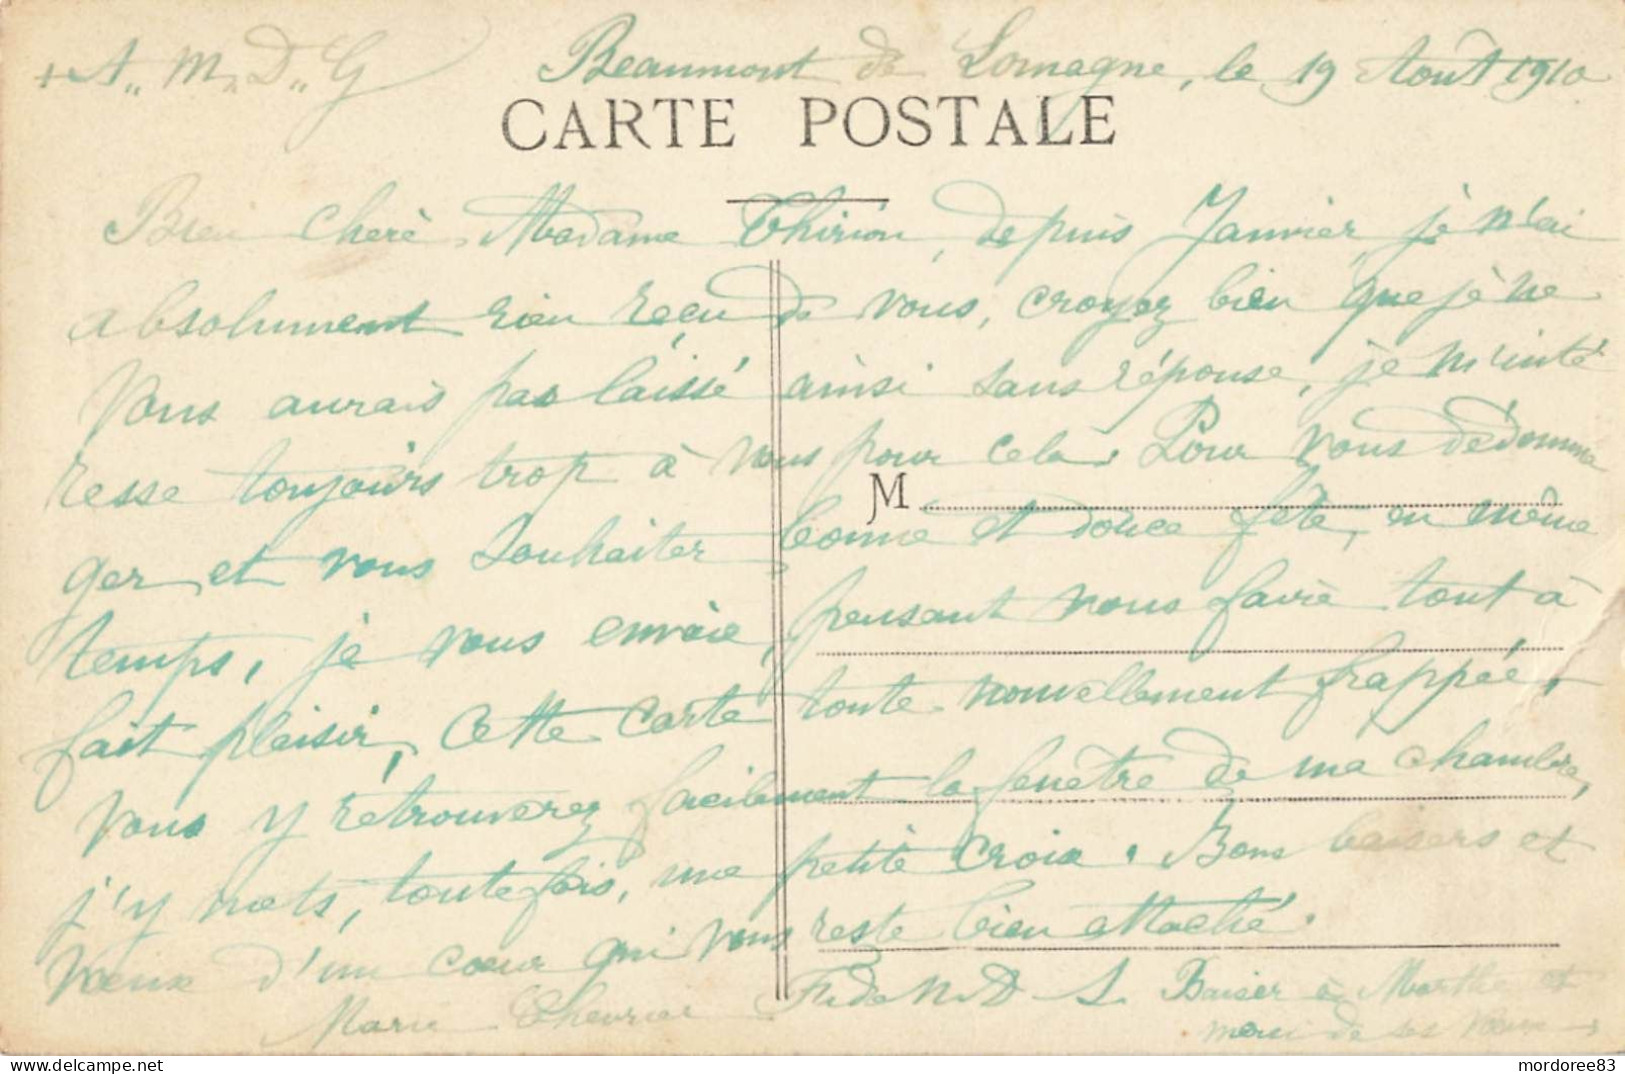 + A. M. D. G Beaumont de Lomagne, le 19 Août 1910
CARTE POSTALE
Bien chère Madame Thirion, depuis Janvier, je n'ai
absolument rien reçu de vous, croyez bien que je ne
vous aurais pas laissé ainsi sans réponse, je m'inté
resse toujours trop à vous pour cela. Pour vous dédomma
M
ger et vous souhaiter bonne et douce fête, en même
temps, je vous envoie, pensant vous faire tout à
fait plaisir, cette carte toute nouvellement frappée,
vous y retrouverez facilement la fenêtre de ma chambre,
j'y mets, toutefois, une petite croix. Bons baisers et
vœux d'un cœur qui vous reste bien attaché.
Marie Chevrier F. de N. D. S. Baiser à Marthe et
merci de ses vœux
mordoree83